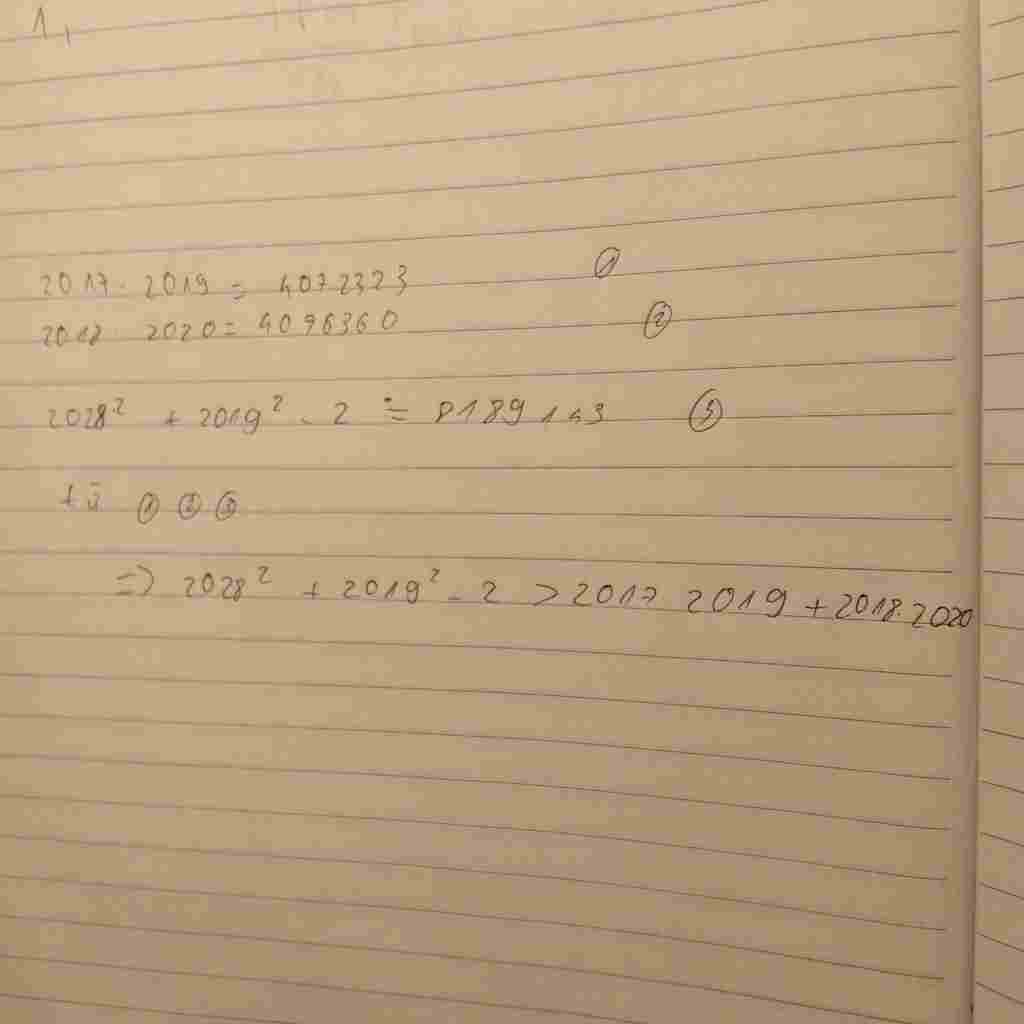 1,
2017 . 2019 = 4072323 ①
2018 2020 = 4096360 ②
2028² + 2019² - 2 = 8189143 ③
từ ① ② ③
=> 2028² + 2019² - 2 > 2017 2019 + 2018.2020